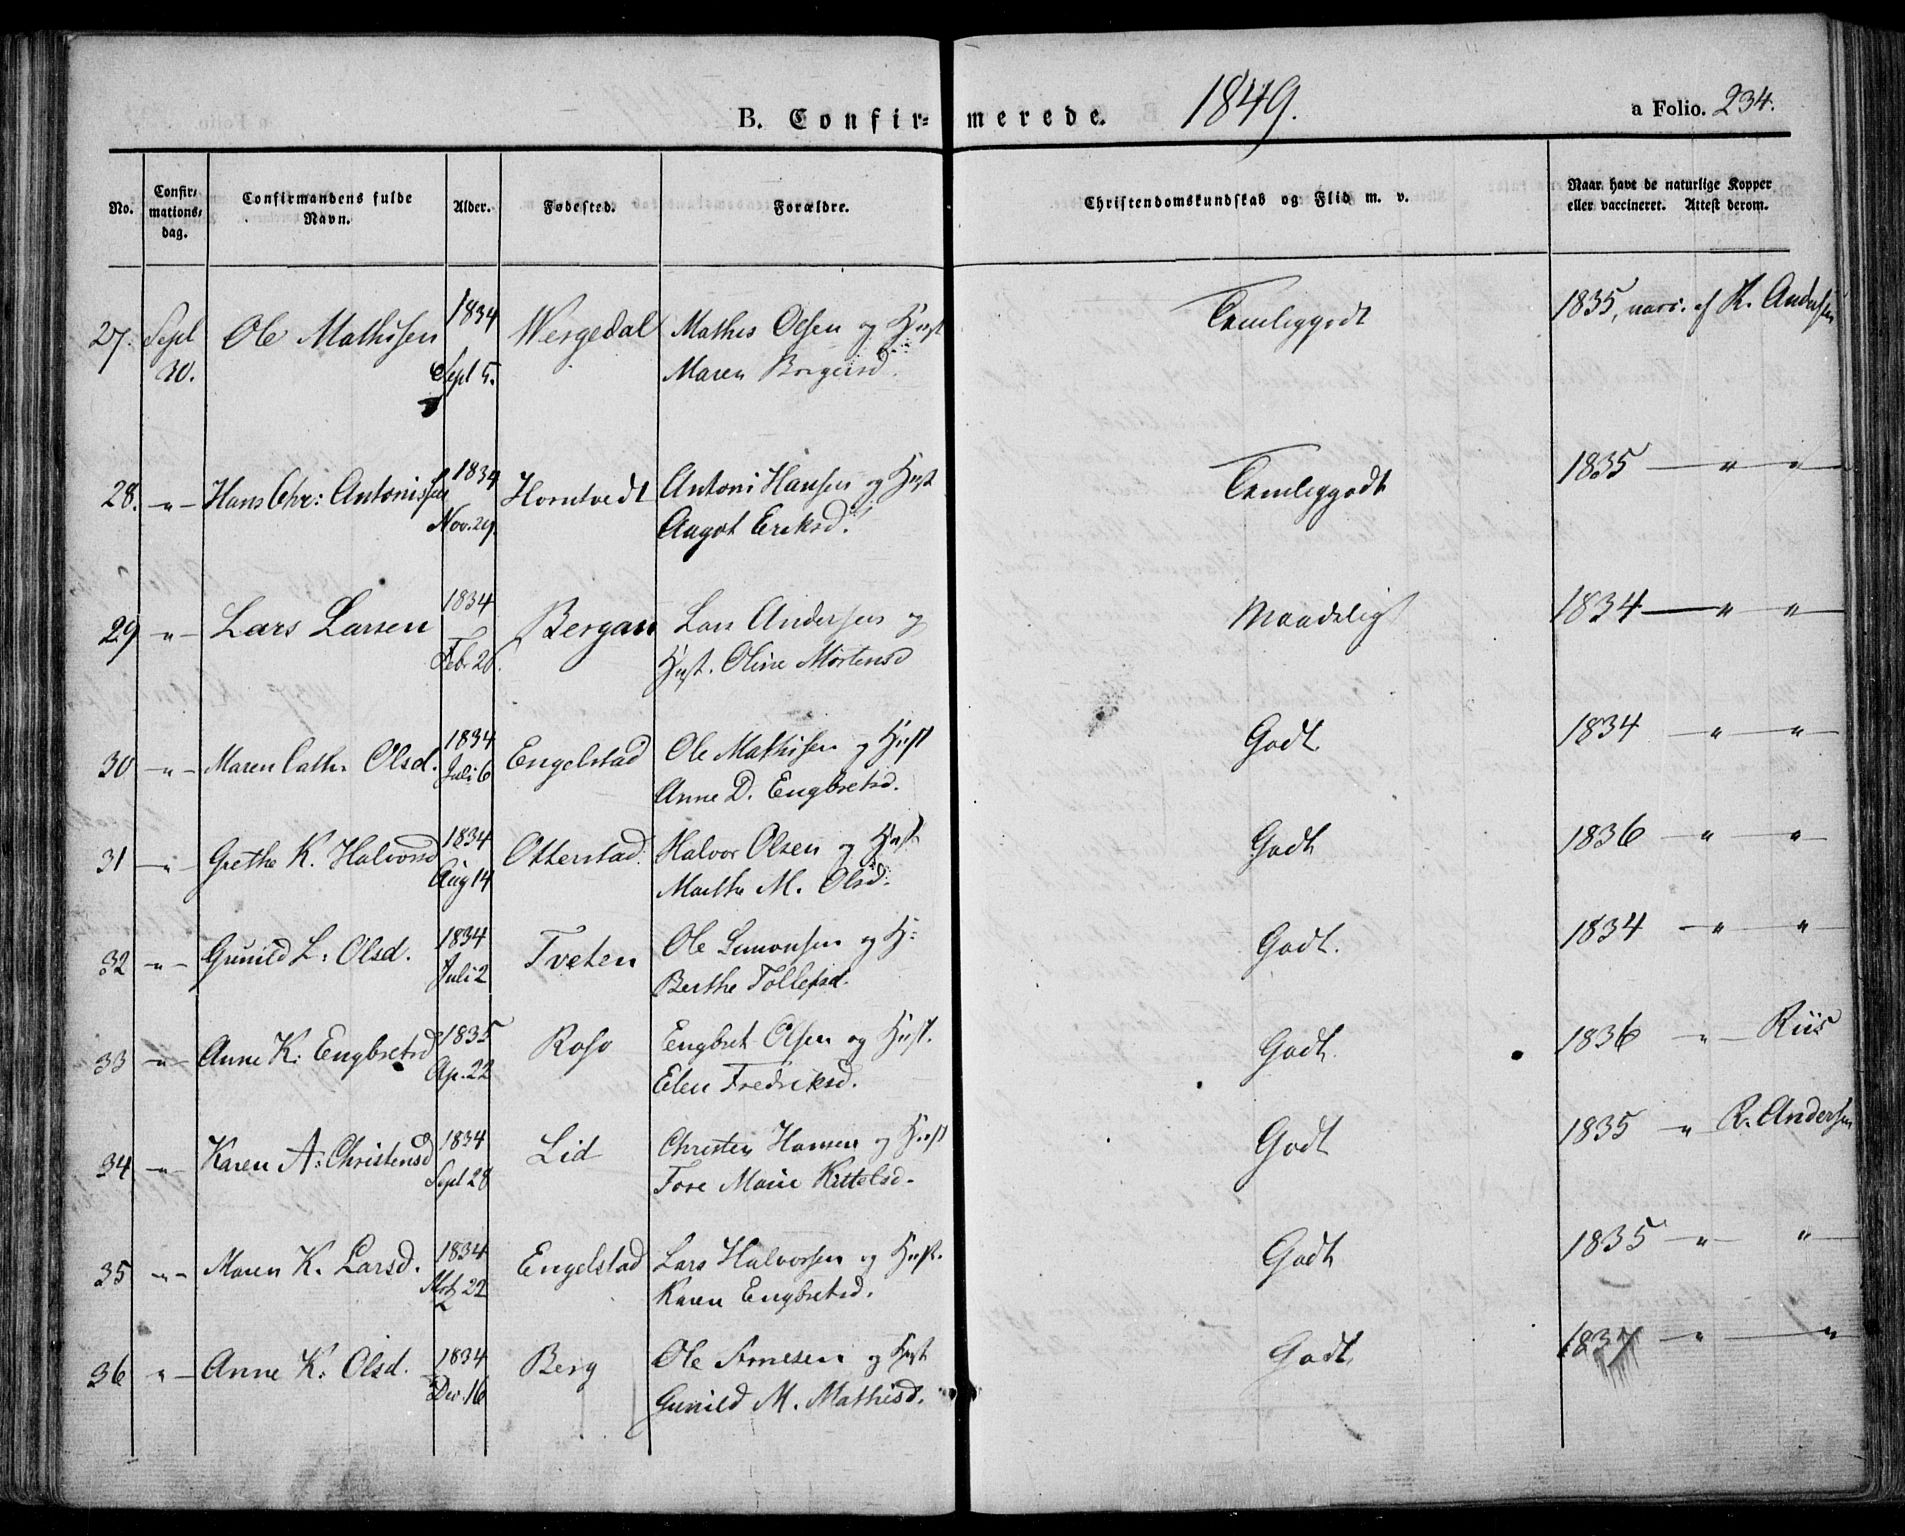 B. Confir= merede. 1849. a Folio. 234.
No. Confir= mations= dag. Confirmandens fulde Navn. Alder. Fødested. Forældre. Christendomskundskab og Flid m. v. Naar havt de naturlige Kopper eller vaccineret. Attest derom.
27. Sept 30. Ole Mathisen 1834 Sept 5. Wergedal Mathis Olsen og Hust Temleggodt 1835, vacc. af R. Andersen
Maren Borgersd.
28. " Hans Chr: Antonissen 1834 Nov. 29. Horntvedt Antoni Hansen og Hust Temleggodt 1835 " "
Aagot Eriksd.
29 " Lars Larsen 1834 Feb. 26. Bergan Lars Andersen og Maadelig 1834 " "
Hust. Oline Mortensd
30 " Maren Cath. Olsd. 1834 Juli 6 Engelstad Ole Mathisen og Hust Godt 1834 " "
Anne D. Engbretsd.
31 " Grethe K. Halvorsd 1834 Aug 14 Otterstad. Halvor Olsen og Hust. Godt 1836 " "
Marthe M. Olsd.
32 " Gunild L. Olsd. 1834 Juli 2 Tveten Ole Simonsen og H: Godt. 1834 " "
Berthe Tollefsd.
33 " Anne K: Engbretsd 1835 Ap. 22 Engbret Olsen og Hust. Godt. 1836 " Riis
Elen Fredriksd.
34 " Karen A: Christensd 1834 Sept 28 Lid Christen Hansen og Hust Godt 1835 " R. Andersen
Tore Marie Kittelsd.
35 " Maren K. Larsd. 1834 22 Engelstad Lars Halvorsen og Hust. Godt 1835 " "
Karen Engbretsd.
36 " Anne K: Olsd. 1834 Dec. 16 Berg Ole Arnesen og Hust Godt. 1837 " "
Gunild M. Mathisd.